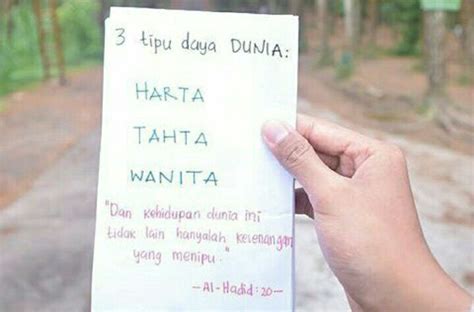 3 tipu daya DUNIA:
HARTA
TAHTA
WANITA
"Dan kehidupan dunia ini
tidak lain hanyalah kesenangan
yang menipu."
—Al-Hadid:20—